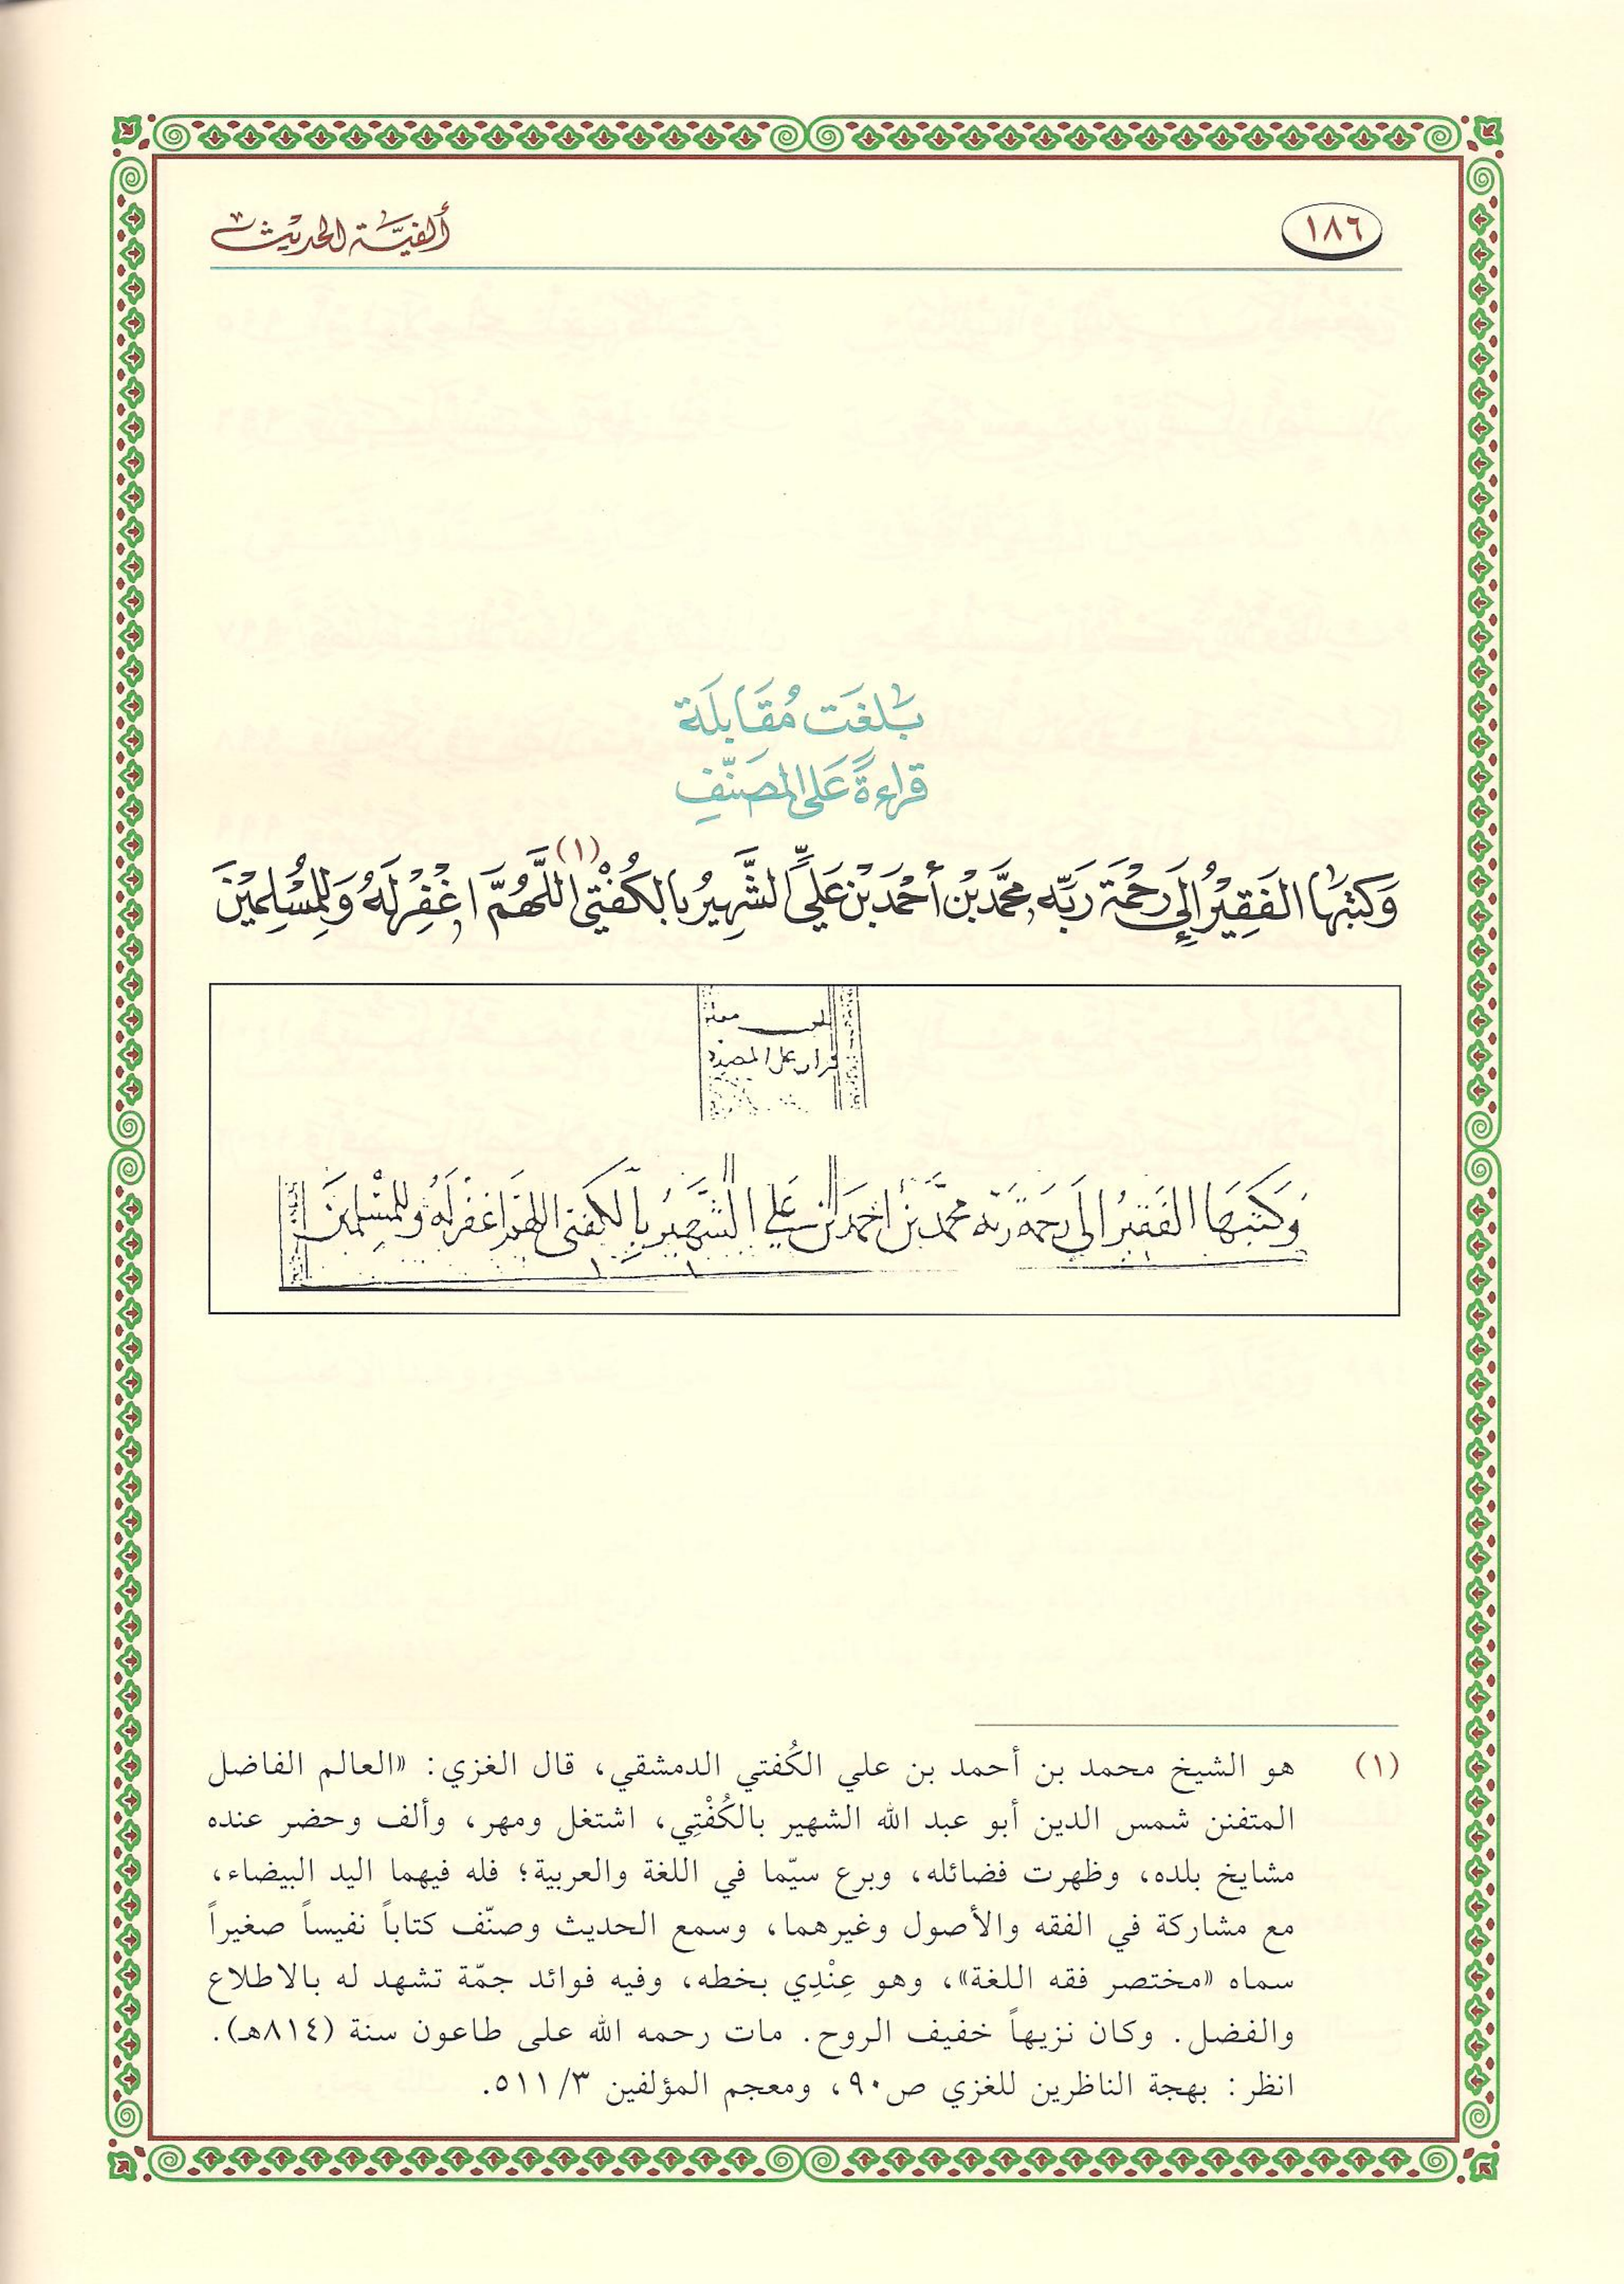 ١٨٦
ألفيَّة الحديث
بَلغَت مُقَابلَة
قراءةً عَلى المصَنّفِ
وَكتبَهَا الفَقِيْرُ إلى رَحْمَة رَبّه محمَّد بْن أحْمَد بْن عَليٍّ الشَّهِيْرُ بالكُفْتي(١) اللَّهُمَّ اغْفِرْ لَهُ وَلِلمُسْلِمِيْنَ
بلغت مقابلة
قراءة على المصنف
وَكَتبَهَا الفَقيرُ الَى رَحمَة رَبّه محمَّد بن أحمَد بن عَلي الشَّهيرُ بالكفتى اللهمَّ اغفر لَهُ وللمسْلمِينَ
(١) هو الشيخ محمد بن أحمد بن علي الكُفتي الدمشقي، قال الغزي: «العالم الفاضل
المتفنن شمس الدين أبو عبد الله الشهير بالكُفْتِي، اشتغل ومهر، وألف وحضر عنده
مشايخ بلده، وظهرت فضائله، وبرع سيّما في اللغة والعربية؛ فله فيهما اليد البيضاء،
مع مشاركة في الفقه والأصول وغيرهما، وسمع الحديث وصنّف كتاباً نفيساً صغيراً
سماه «مختصر فقه اللغة»، وهو عِنْدِي بخطه، وفيه فوائد جمّة تشهد له بالاطلاع
والفضل. وكان نزيهاً خفيف الروح. مات رحمه الله على طاعون سنة (٨١٤هـ).
انظر: بهجة الناظرين للغزي ص٩٠، ومعجم المؤلفين ٣/ ٥١١.